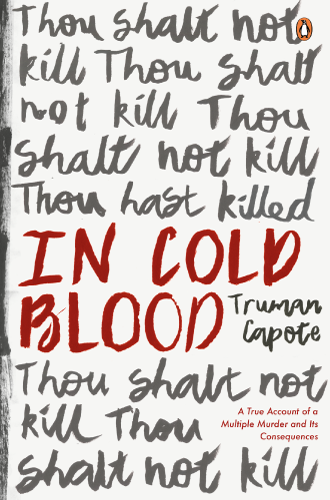 Thou shalt not
kill Thou shalt
not kill Thou
shalt not kill
Thou hast killed
IN COLD
BLOOD
Truman
Capote
Thou shalt not
kill Thou
shalt not kill
A True Account of a
Multiple Murder and Its
Consequences